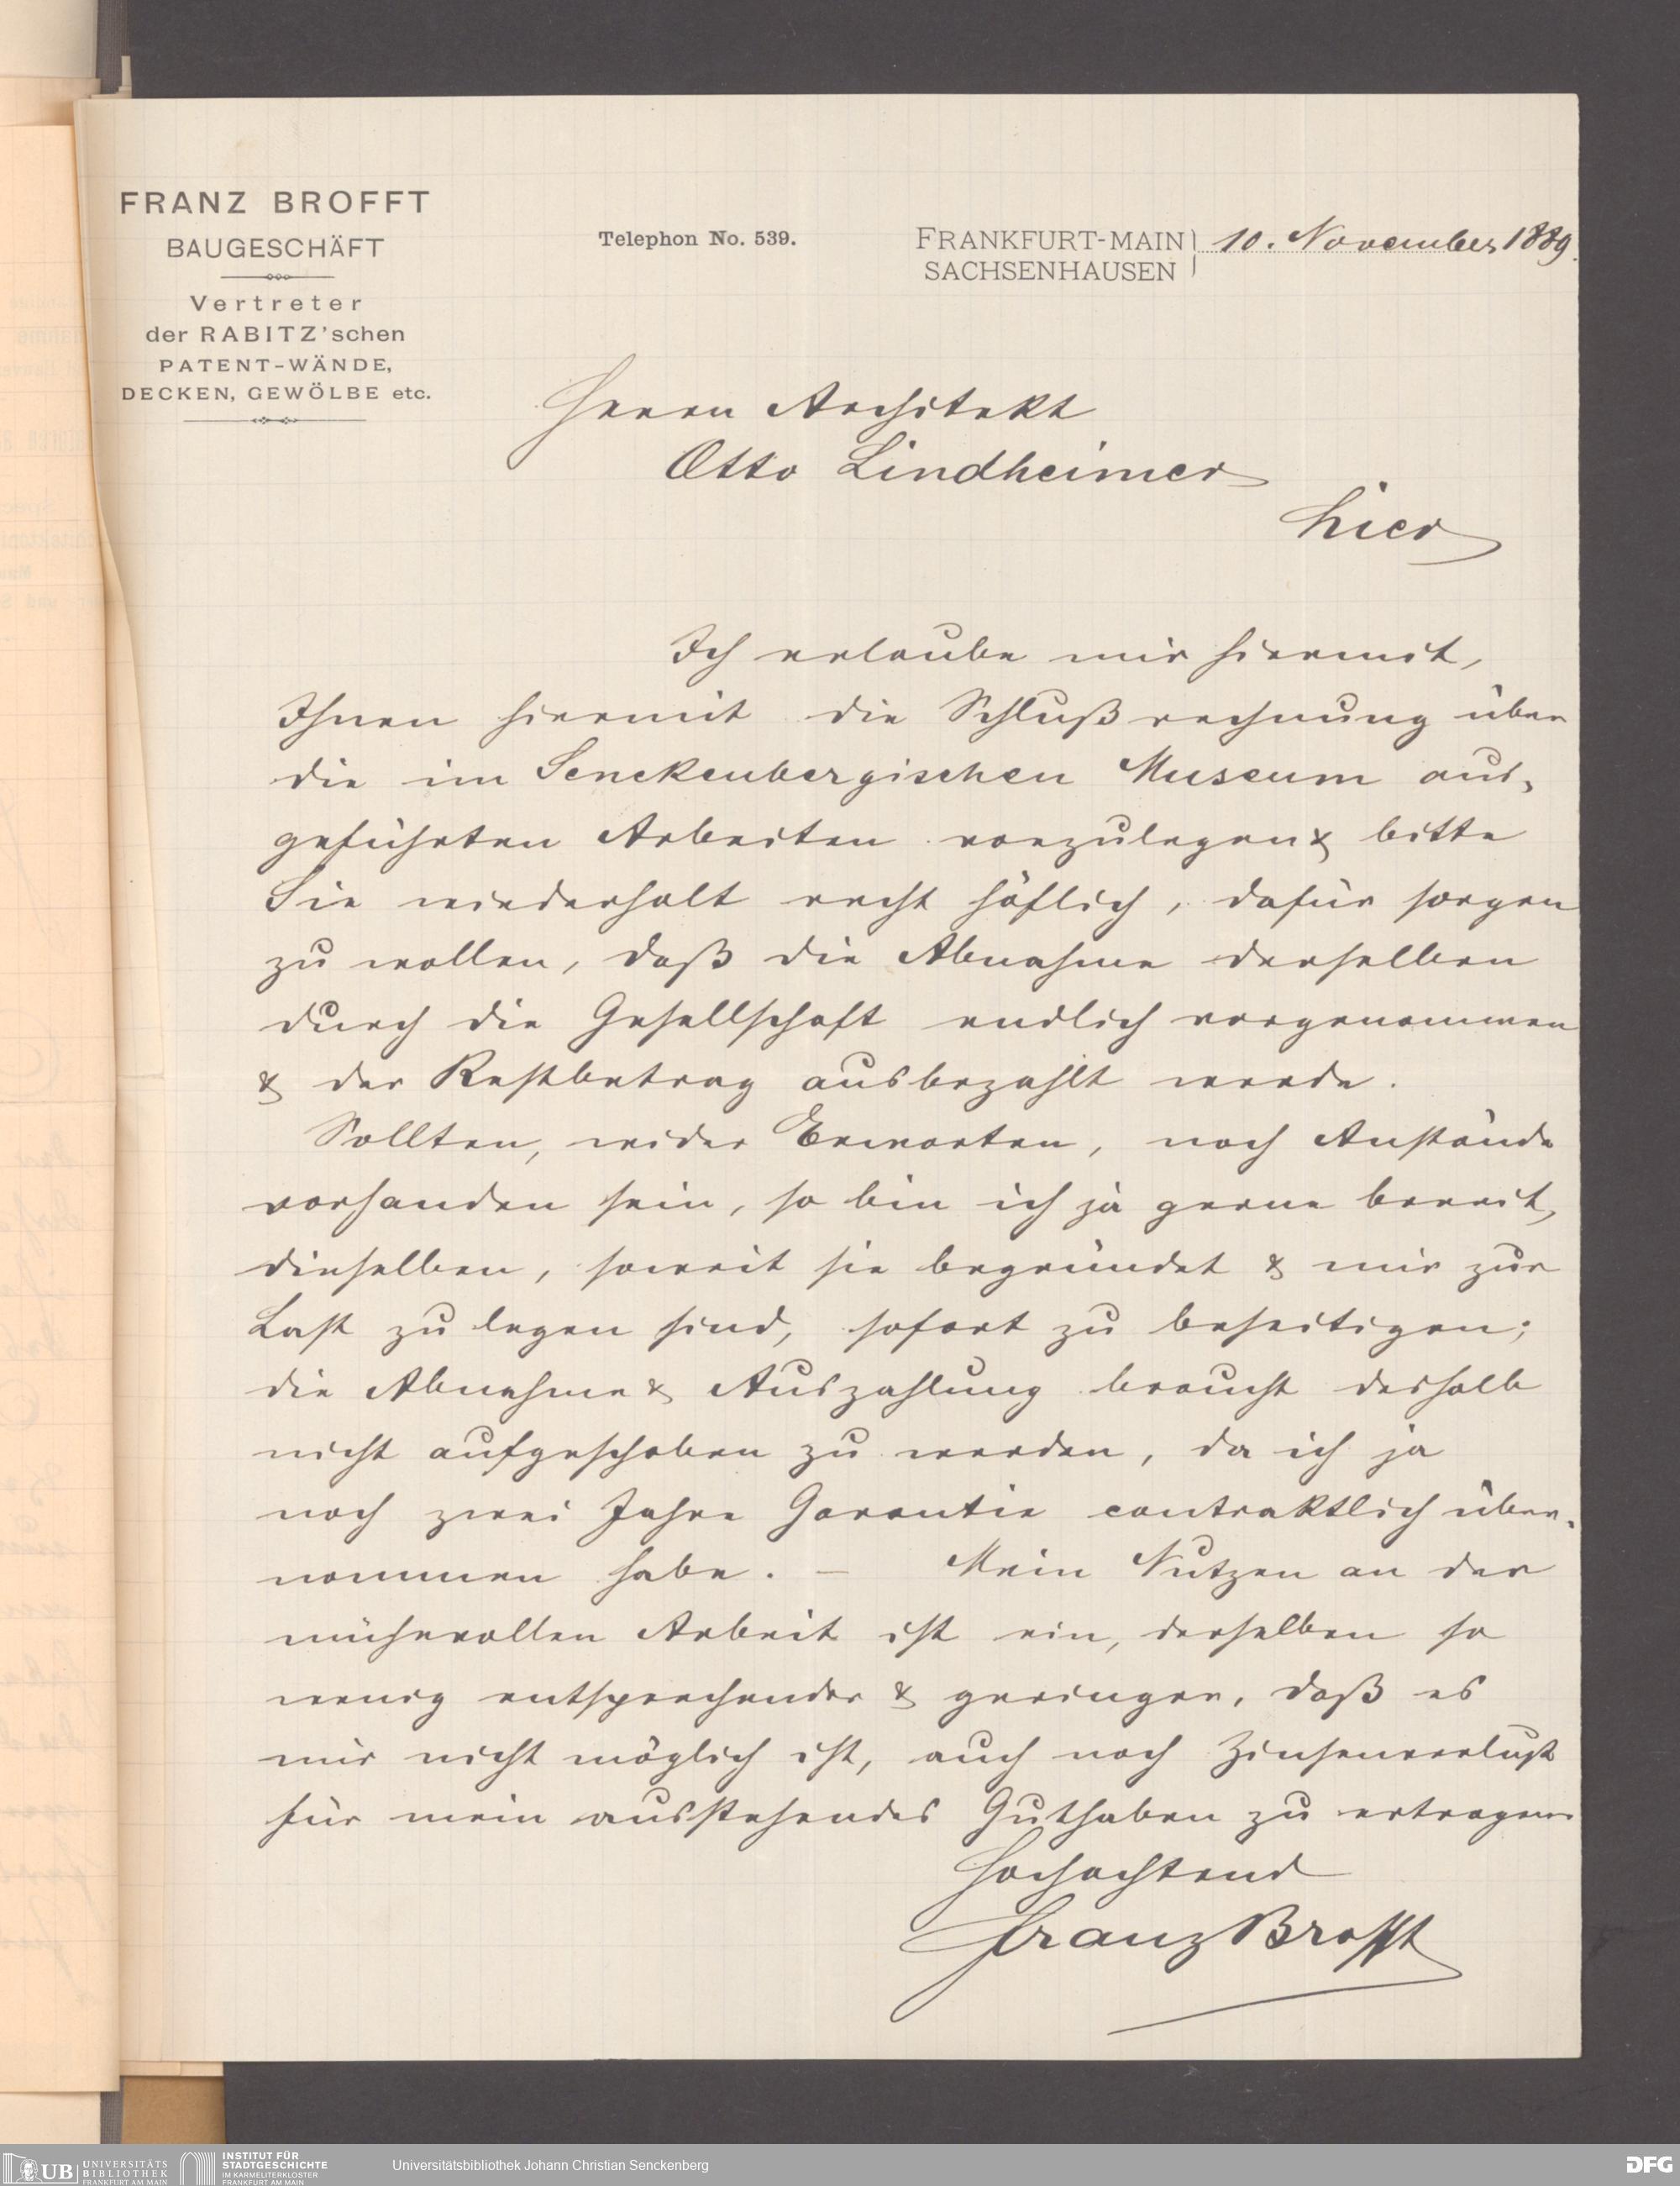 FRANZ BROFFT
BAUGESCHÄFT
Vertreter
der RABITZ'schen
PATENT-WÄNDE,
DECKEN, GEWÖLBE etc.
Telephon No. 539.
FRANKFURT-MAIN
SACHSENHAUSEN
10. November 1889.
Herrn Architekt
Otto Lindheimer
hier
Ich erlaube mir hiermit,
Ihnen hiermit die Schlußrechnung über
die im Senckenbergischen Museum aus-
geführten Arbeiten vorzulegen & bitte
Sie wiederholt recht höflich, dafür sorgen
zu wollen, daß die Abnahme derselben
durch die Gesellschaft endlich vorgenommen
& der Restbetrag ausbezahlt werde.
Sollten, wider Erwarten, noch Anstände
vorhanden sein, so bin ich ja gerne bereit,
dieselben, soweit sie begründet & mir zur
Last zu legen sind, sofort zu beseitigen;
die Abnahme & Auszahlung braucht deshalb
nicht aufgeschoben zu werden, da ich ja
noch zwei Jahre Garantie contraktlich über-
nommen habe. – Mein Nutzen an der
mühevollen Arbeit ist ein, derselben so
wenig entsprechender & geringer, daß es
mir nicht möglich ist, auch noch Zinsenverlust
für mein ausstehendes Guthaben zu ertragen.
Hochachtend
Franz Brofft
UB UNIVERSITÄTS
BIBLIOTHEK
FRANKFURT AM MAIN
INSTITUT FÜR
STADTGESCHICHTE
IM KARMELITERKLOSTER
FRANKFURT AM MAIN
Universitätsbibliothek Johann Christian Senckenberg
DFG